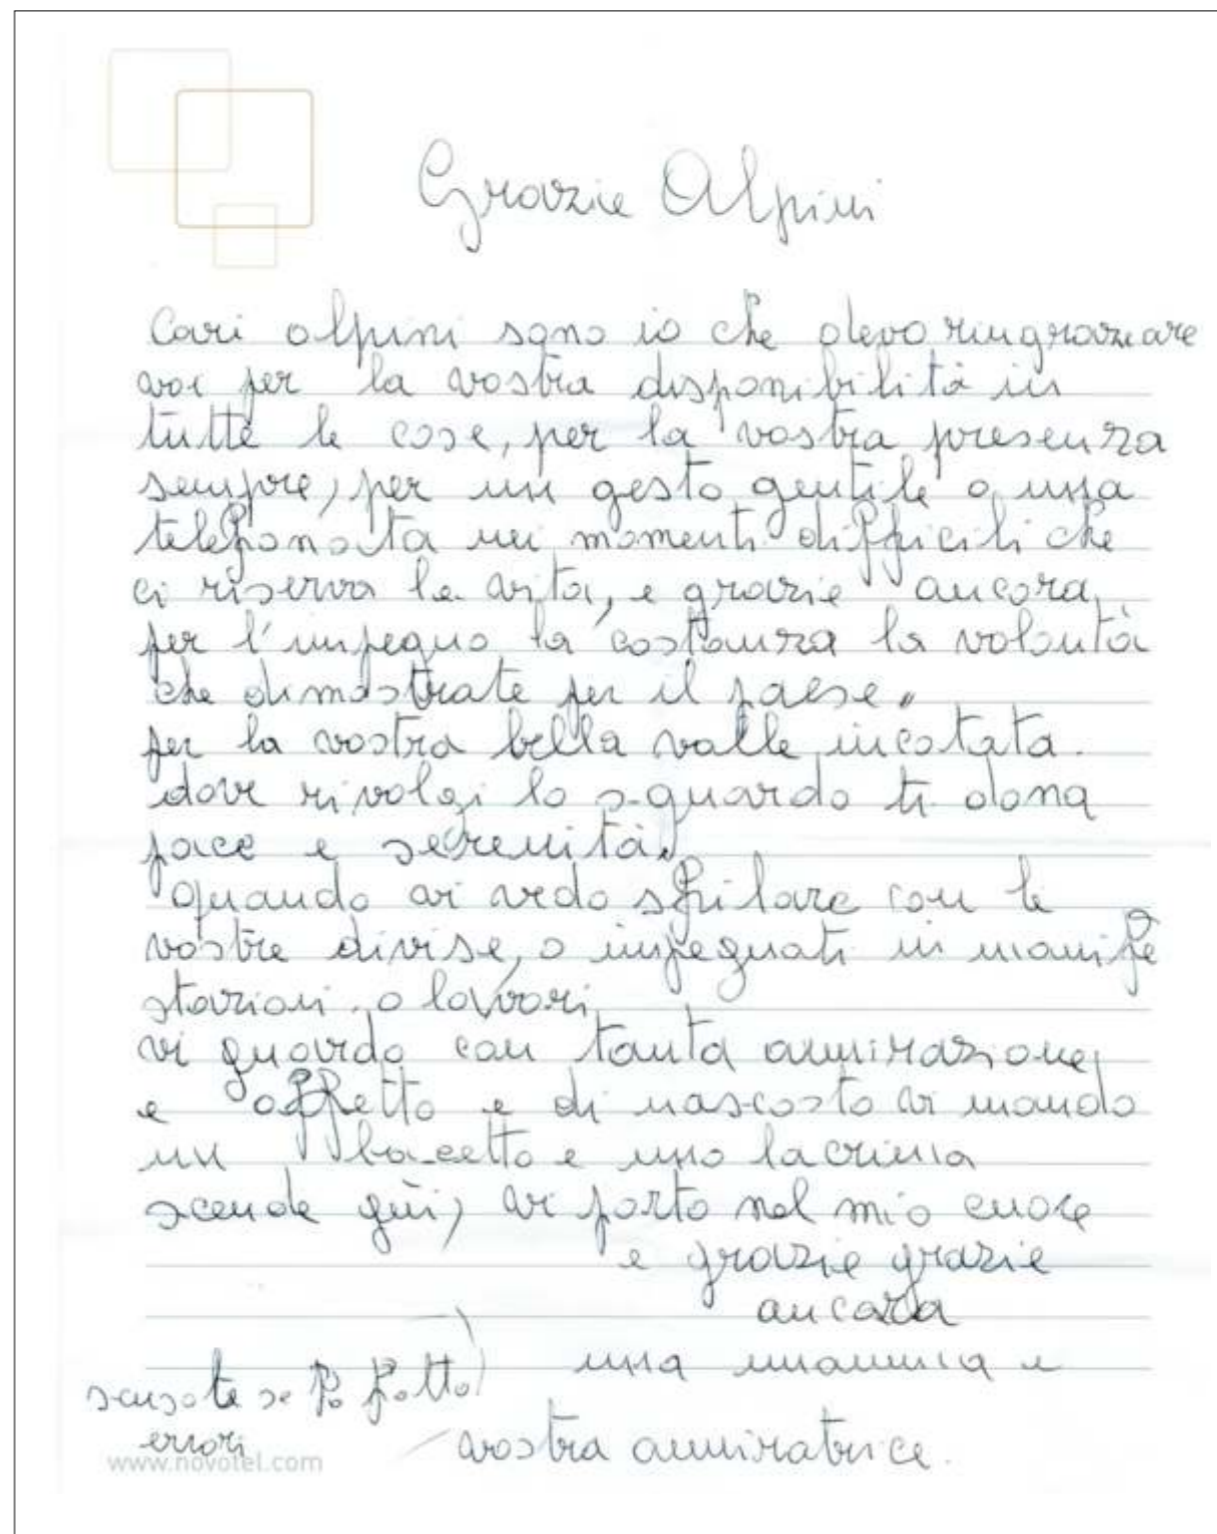 Grazie Alpini
Cari alpini sono io che devo ringraziare
voi per la vostra disponibilità in
tutte le cose, per la vostra presenza
sempre, per un gesto gentile o una
telefonata nei momenti difficili che
ci riserva la vita, e grazie ancora
per l'impegno la costanza la volontà
che dimostrate per il paese.
per la vostra bella valle incotata.
dove rivolgi lo sguardo ti dona
pace e serenità.
Quando vi vedo sfilare con le
vostre divise, o impegnati in manife
stazioni o lavori
vi guardo con tanta ammirazione,
e affetto e di nascosto vi mando
un bacetto e una lacrima
scende giù, vi porto nel mio cuore
e grazie grazie
ancora
una mamma e
vostra ammiratrice.
scusate se ho fatto
errori
www.novotel.com